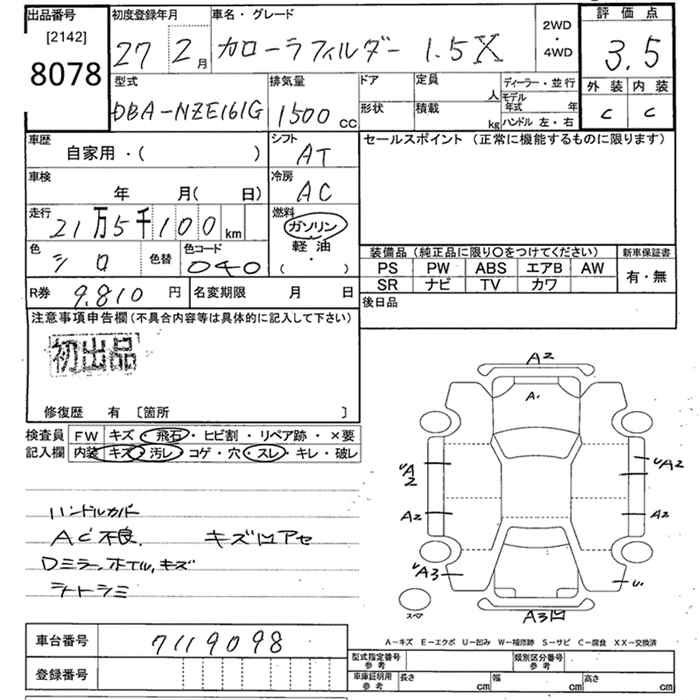 出品番号 [2142] 8078
初度登録年月 27 2月
車名・グレード カローラフィルダー 1.5X
2WD・4WD
評価点 3.5
外装 内装
C C
型式 DBA-NZE161G
排気量 1500 CC
ドア 定員 人
形状 積載 kg
ディーラー・並行
モデル年式 年
ハンドル 左・右
車歴 自家用・( )
シフト AT
セールスポイント (正常に機能するものに限ります)
車検 年 月( 日)
冷房 AC
走行 21万5千100 km
燃料 ガソリン
軽油
( ・ )
色 シロ 色替 色コード 040
装備品(純正品に限り〇をつけてください) 新車保証書
PS PW ABS エアB AW 有・無
SR ナビ TV カワ
R券 9,810 円 名変期限 月 日
後日品
注意事項申告欄(不具合内容等は具体的に記入して下さい)
初出品
修復歴 有 [箇所 ]
検査員 FW キズ・飛石・ヒビ割・リペア跡・×要
記入欄 内装 キズ・汚レ・コゲ・穴・スレ・キレ・破レ
ハンドルカバー
AC不良 キズ凹アセ
Dミラー、ホイル、キズ
シートシミ
A2
A1
UA2 UA2
A2 A2
UA3 U1
スペア A3凹
A-キズ E-エクボ U-凹み W-補修跡 S-サビ C-腐食 XX-交換済
車台番号 7119098
登録番号
型式指定番号 参考 類別区分番号 参考
車庫証明用 参考 長さ cm 幅 cm 高さ cm